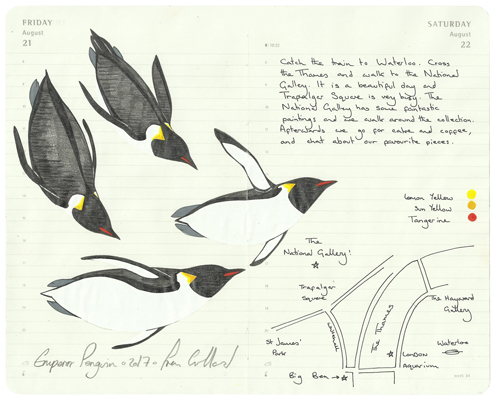 FRIDAY
August
21
SATURDAY
August
22
Catch the train to Waterloo. Cross
the Thames and walk to the National
Gallery. It is a beautiful day and
Trafalgar Square is very busy. The
National Gallery has some fantastic
paintings and we walk around the collection.
Afterwards we go for cake and coffee,
and chat about our favourite pieces.
Lemon Yellow
Sun Yellow
Tangerine
The
National Gallery!
Trafalgar
Square
Whitehall
The Thames
The Hayward
Gallery
St James'
Park
Waterloo
London
Aquarium
Big Ben
Emperor Penguin 2017